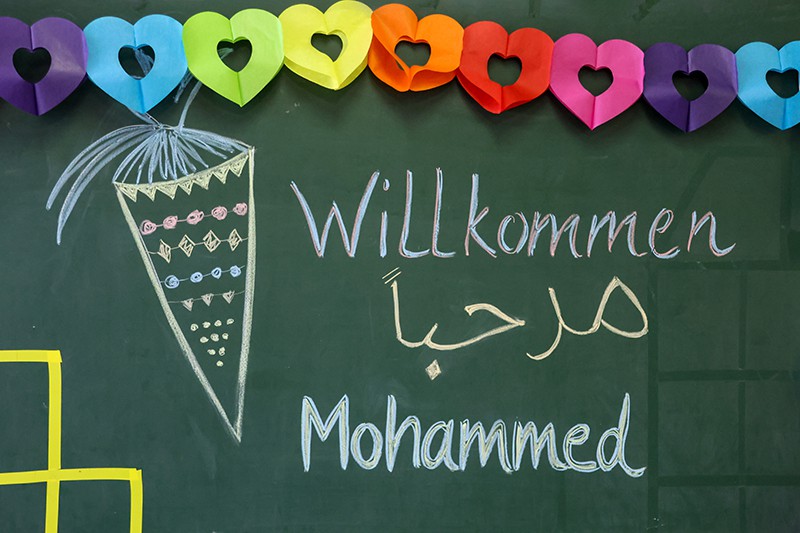 Willkommen
مرحباً
Mohammed